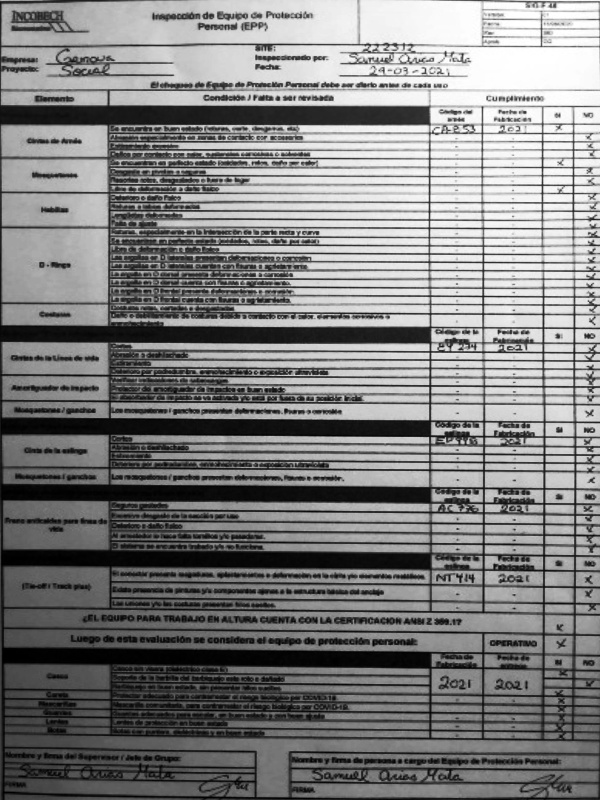 INCOBECH
Inspección de Equipo de Protección
Personal (EPP)
SIG-F-48
Empresa: Genova
Proyecto: Social
SITE: 222312
Inspeccionado por: Samuel Arias Mata
Fecha: 29-03-2021
El chequeo de Equipo de Protección Personal debe ser diario antes de cada uso
Elemento Condición / Falta a ser revisada Cumplimiento
Código del arnés Fecha de Fabricación SI NO
Cintas de Arnés
Se encuentra en buen estado CA-253 2021 X
Abrasión especialmente en zonas de contacto con accesorios X
Estiramiento excesivo X
Daños por contacto con calor, sustancias corrosivas o solventes X
Mosquetones
Se encuentran en perfecto estado (oxidados, rotos, daño por calor) X
Desgaste en pivotes o seguros X
Resortes rotos, desgastados o fuera de lugar X
Libre de deformación o daño físico X
Hebillas
Deterioro o daño físico X
Lengüetas deformadas X
Falta de ajuste X
D - Rings
Roturas, especialmente en la intersección de la parte recta y curva X
Se encuentran en perfecto estado (oxidados, rotos, daño por calor) X
Libre de deformación o daño físico X
Las argollas en D laterales presentan deformaciones o corrosión X
Las argollas en D laterales cuentan con fisuras o agrietamiento. X
La argolla en D dorsal presenta deformaciones o corrosión X
La argolla en D dorsal cuenta con fisuras o agrietamiento. X
La argolla en D frontal presenta deformaciones o corrosión. X
La argolla en D frontal cuenta con fisuras o agrietamiento. X
Costuras
Costuras rotas, cortadas o desgastadas X
Daño o debilitamiento de costuras debido a contacto con el calor, elementos corrosivos o enmohecimiento X
Código de la eslinga Fecha de Fabricación SI NO
Cintas de la Línea de vida
Cortes 2021 X
Abrasión o deshilachado X
Estiramiento X
Deterioro por podredumbre, enmohecimiento o exposición ultravioleta X
Amortiguador de impacto
Verificar indicadores de sobrecarga X
Protector del amortiguador de impactos en buen estado X
El absorbedor de impacto se ve activado y/o está por fuera de su posición inicial. X
Mosquetones / ganchos Los mosquetones / ganchos presentan deformaciones, fisuras o corrosión X
Código de la eslinga Fecha de Fabricación SI NO
Cinta de la eslinga
Cortes 2021 X
Abrasión o deshilachado X
Estiramiento X
Deterioro por podredumbre, enmohecimiento o exposición ultravioleta X
Mosquetones / ganchos Los mosquetones / ganchos presentan deformaciones, fisuras o corrosión. X
Código de la eslinga Fecha de Fabricación SI NO
Freno anticaídas para línea de vida
Seguros gastados AC 776 2021 X
Excesivo desgaste de la sección por uso X
Deterioro o daño físico X
Al arrestador le hace falta tornillos y/o pasadores. X
El sistema se encuentra trabado y/o no funciona. X
Código de la eslinga Fecha de Fabricación SI NO
(Tie-off / Track plus)
El conector presenta rasgaduras, aplastamientos o deformación en la cinta y/o elementos metálicos. NT414 2021 X
Existe presencia de pinturas y/o componentes ajenos a la estructura básica del anclaje X
Las uniones y/o las costuras presentan hilos sueltos. X
¿EL EQUIPO PARA TRABAJO EN ALTURA CUENTA CON LA CERTIFICACION ANSI Z 359.1? X
Luego de esta evaluación se considera el equipo de protección personal: OPERATIVO X
Fecha de Fabricación SI NO
Casco
Casco sin visera (dieléctrico clase E) 2021 2021 X
Soporte de la barbilla del barbiquejo esta roto o dañado X
Barbiquejo en buen estado, sin presentar hilos sueltos X
Careta Protector adecuado para contrarrestar el riesgo biológico por COVID-19. X
Mascarillas Mascarilla comunitaria, para contrarrestar el riesgo biológico por COVID-19. X
Guantes Guantes adecuados para escalar, en buen estado y con buen ajuste X
Lentes Lentes de protección en buen estado X
Botas Botas con puntera, dieléctricas y en buen estado X
Nombre y firma del Supervisor / Jefe de Grupo:
Samuel Arias Mata
FIRMA
Nombre y firma de persona a cargo del Equipo de Protección Personal:
Samuel Arias Mata
FIRMA